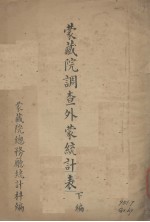 蒙藏院調查外蒙統計表
下編
蒙藏院總務廳統計科編